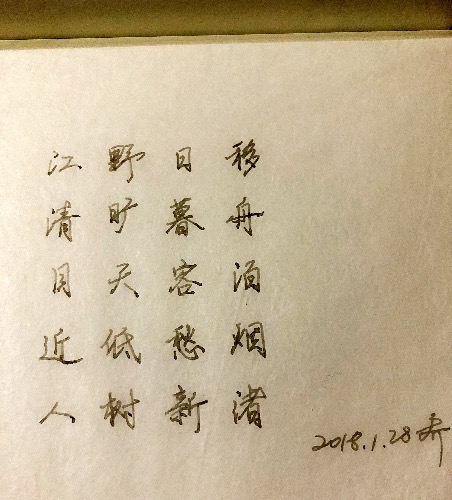 移舟泊烟渚
日暮客愁新
野旷天低树
江清月近人
2018.1.28